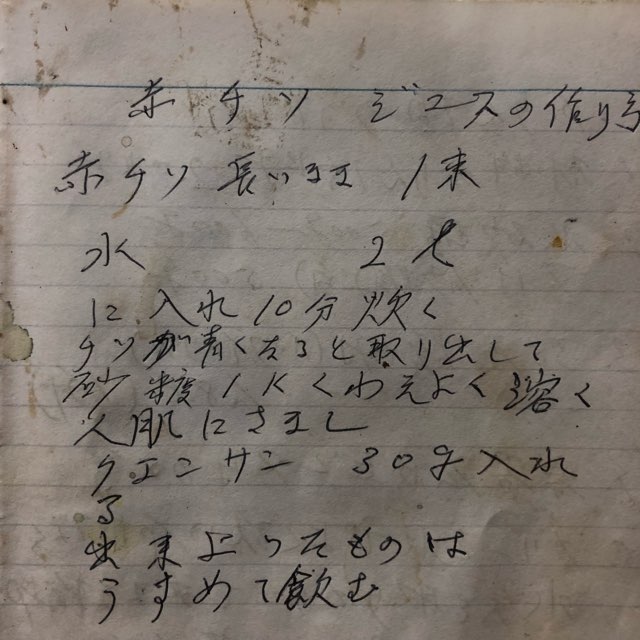 赤チソ ジュースの作り方
赤チソ 長いまま 1束
水 2ℓ
に入れ10分炊く
チソが青くなると取り出して
砂糖1Kくわえよく溶く
人肌にさまし
クエンサン 30g入れ
る
出来上ったものは
うすめて飲む